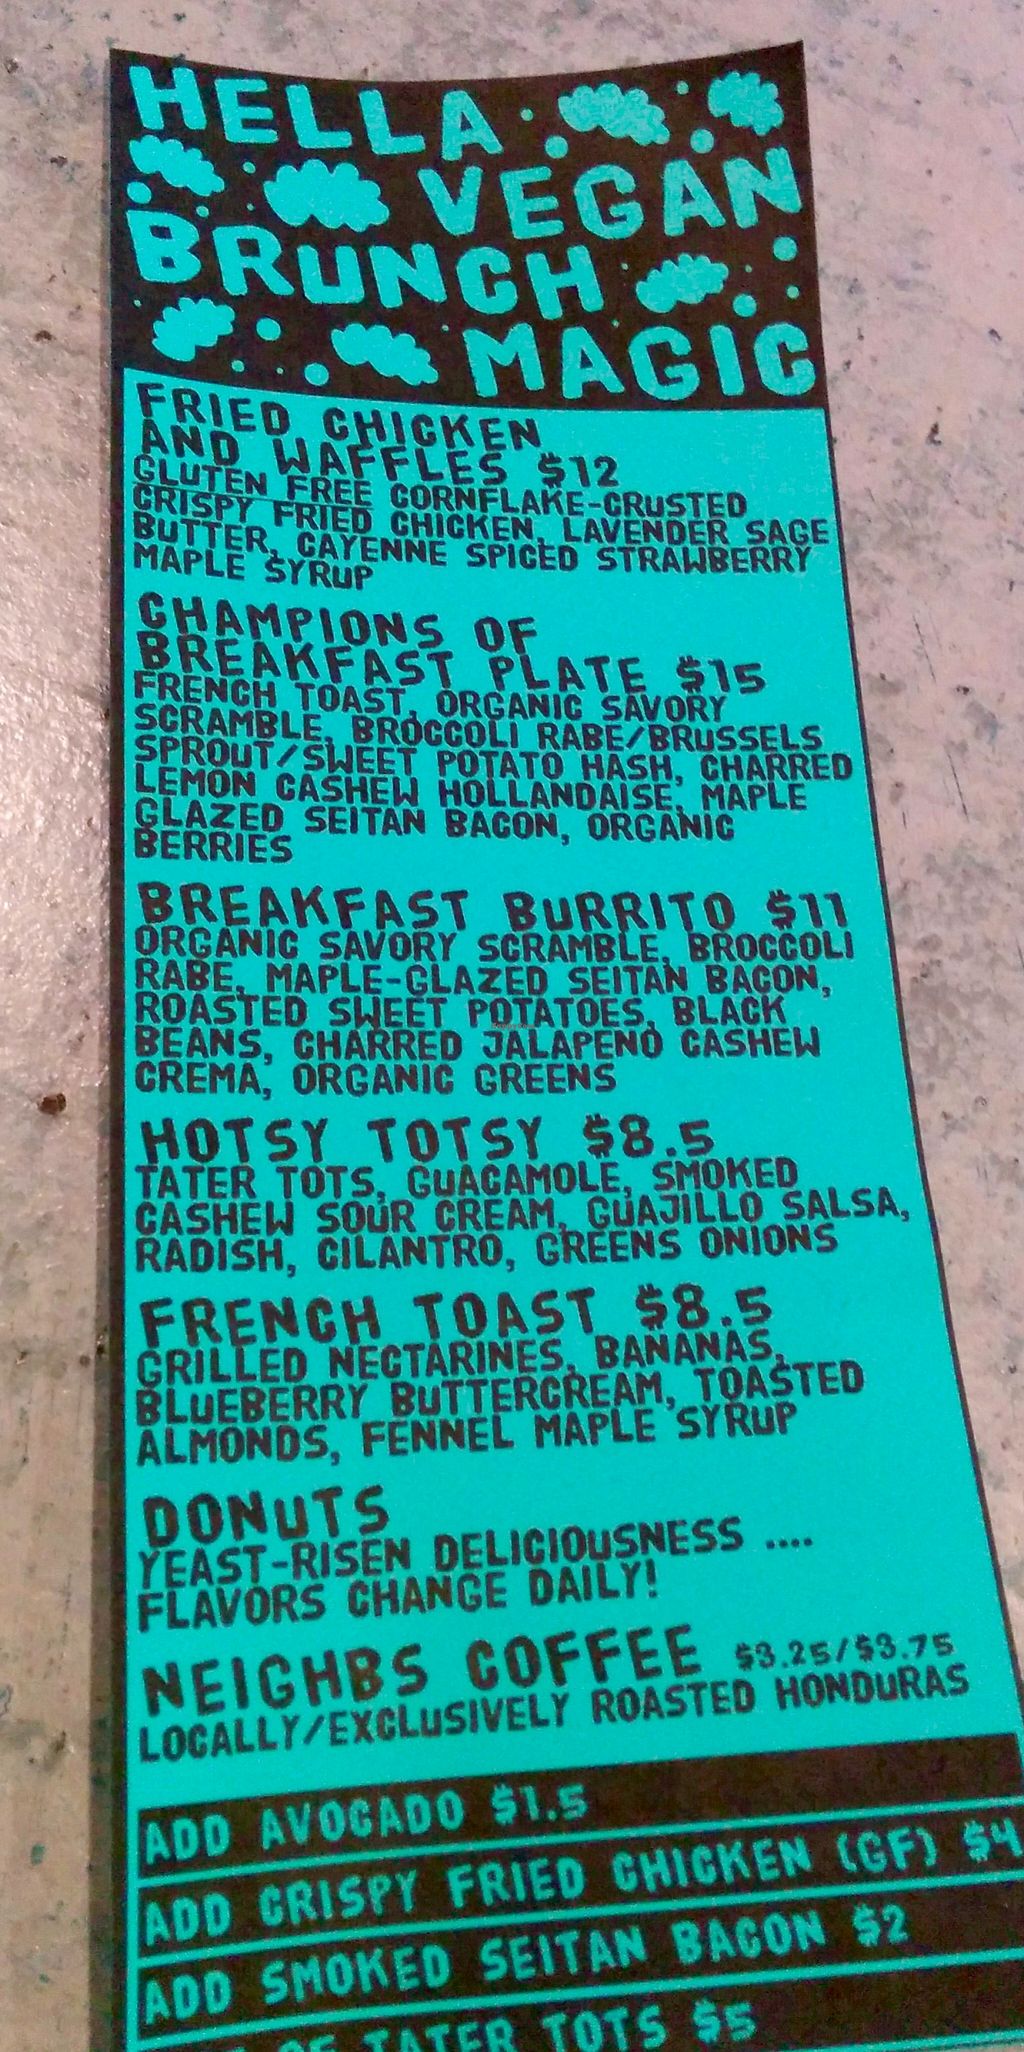 HELLA
VEGAN
BRUNCH
MAGIC
FRIED CHICKEN
AND WAFFLES $12
GLUTEN FREE CORNFLAKE-CRUSTED
CRISPY FRIED CHICKEN, LAVENDER SAGE
BUTTER, CAYENNE SPICED STRAWBERRY
MAPLE SYRUP
CHAMPIONS OF
BREAKFAST PLATE $15
FRENCH TOAST, ORGANIC SAVORY
SCRAMBLE, BROCCOLI RABE/BRUSSELS
SPROUT/SWEET POTATO HASH, CHARRED
LEMON CASHEW HOLLANDAISE, MAPLE
GLAZED SEITAN BACON, ORGANIC
BERRIES
BREAKFAST BURRITO $11
ORGANIC SAVORY SCRAMBLE, BROCCOLI
RABE, MAPLE-GLAZED SEITAN BACON,
ROASTED SWEET POTATOES, BLACK
BEANS, CHARRED JALAPENO CASHEW
CREMA, ORGANIC GREENS
HOTSY TOTSY $8.5
TATER TOTS, GUACAMOLE, SMOKED
CASHEW SOUR CREAM, GUAJILLO SALSA,
RADISH, CILANTRO, GREENS ONIONS
FRENCH TOAST $8.5
GRILLED NECTARINES, BANANAS,
BLUEBERRY BUTTERCREAM, TOASTED
ALMONDS, FENNEL MAPLE SYRUP
DONUTS
YEAST-RISEN DELICIOUSNESS ....
FLAVORS CHANGE DAILY!
NEIGHBS COFFEE $3.25/$3.75
LOCALLY/EXCLUSIVELY ROASTED HONDURAS
ADD AVOCADO $1.5
ADD CRISPY FRIED CHICKEN (GF) $4
ADD SMOKED SEITAN BACON $2
TATER TOTS $5